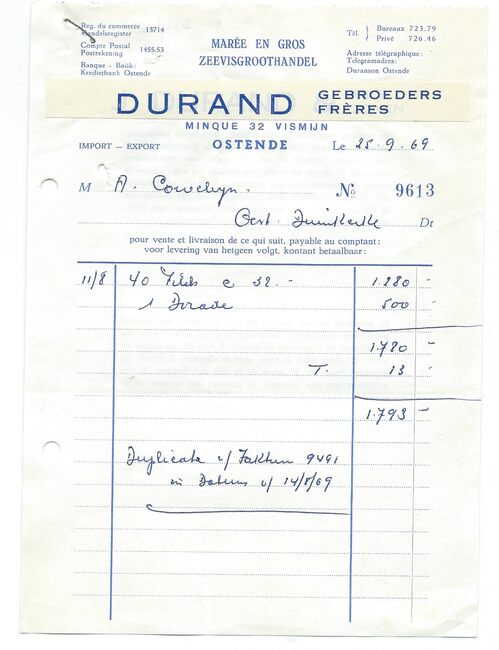 Reg. du commerce 13714
Handelsregister
Compte Postal 1455.53
Postrekening
Banque - Bank:
Kredietbank Ostende
MARÉE EN GROS
ZEEVISGROOTHANDEL
Tél. Bureaux 723.79
Privé 726.46
Adresse télégraphique:
Telegramadres:
Duranson Ostende
DURAND GEBROEDERS
FRÈRES
MINQUE 32 VISMIJN
IMPORT — EXPORT OSTENDE Le 25.9.69
M A. No 9613
Oost Duinkerke Dt
pour vente et livraison de ce qui suit, payable au comptant:
voor levering van hetgeen volgt, kontant betaalbaar:
11/8 40 Filets c 32.- 1.280 -
1 Dorade 500 -
1.780 -
T. 13 -
1.793 -
Duplicata v/ Faktuur 9491
in Datum v/ 14/8/69